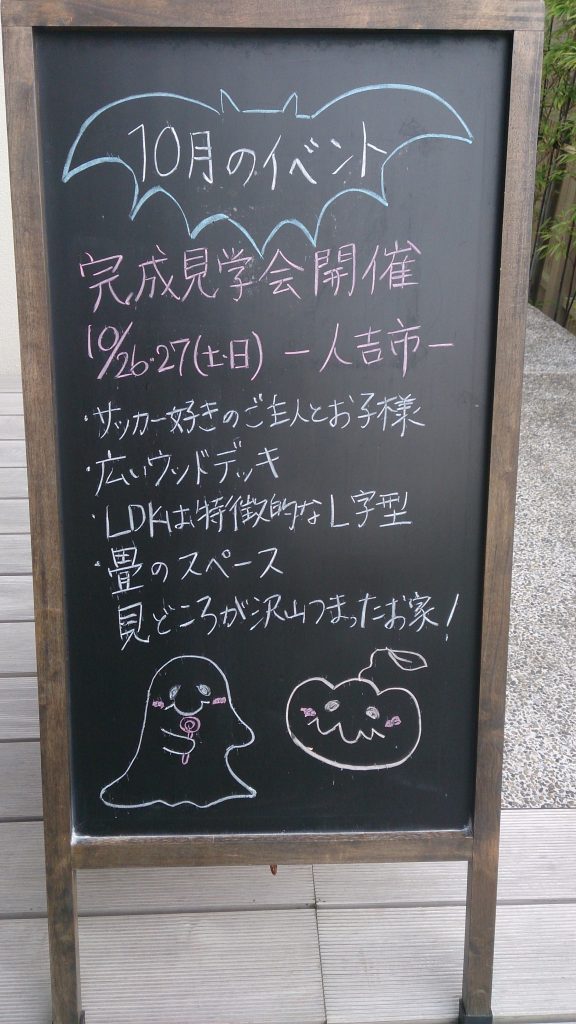 10月のイベント
完成見学会開催
10/26・27(土・日) ー人吉市ー
・サッカー好きのご主人とお子様
・広いウッドデッキ
・LDKは特徴的なL字型
・畳のスペース
見どころが沢山つまったお家!